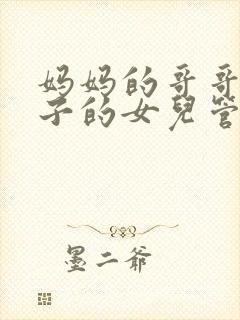 妈妈的哥哥
子的女兒管
墨二爷